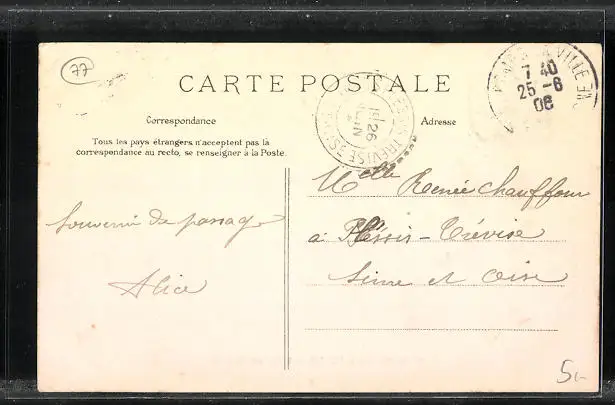 77
CARTE POSTALE
7 40
25 -6
06
26
JUIN
Correspondance
Adresse
Tous les pays étrangers n'acceptent pas la
correspondance au recto, se renseigner à la Poste.
Souvenir de passage
Alice
Melle Renée Chauffour
à Plessis-Trévise
Seine et Oise